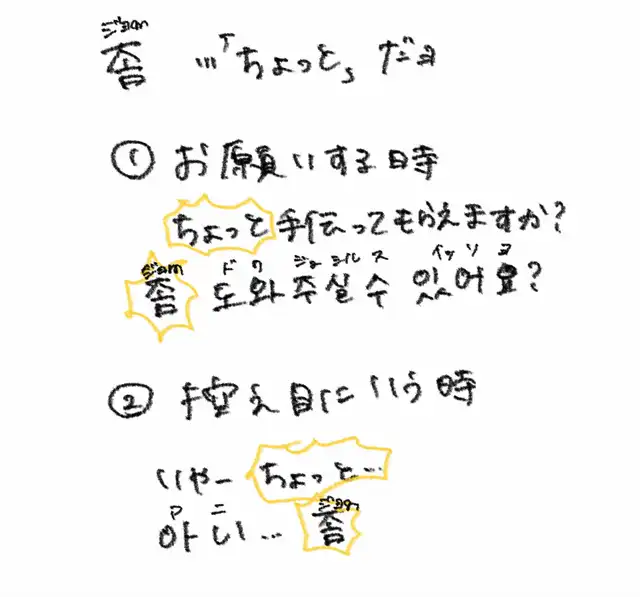 ジョm
좀 …「ちょっと」だヨ
① お願いする時
ちょっと手伝ってもらえますか?
ジョm ド ワ ジュ シル ス イッ ソ ヨ
좀 도와주실 수 있어요?
② 控え目にいう時
いやー ちょっと…
ア ニ ジョm
아니… 좀